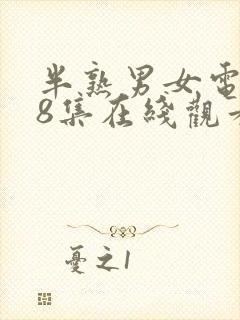 半熟男女電
8集在綫觀
憂之1